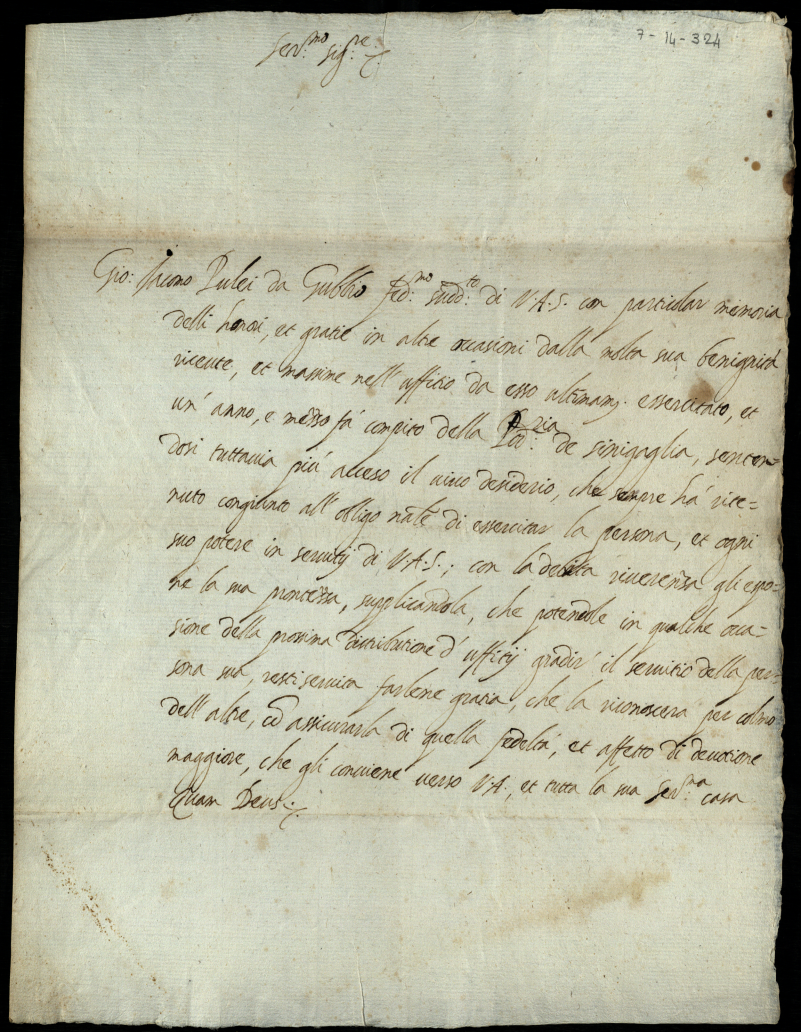 7-14-324
Ser.mo Sig.re
Gio: Iacomo Pulei da Gubbio fed.mo sudd.to di V.A.S. con particular memoria
delli honori, et gratie in altre occasioni dalla molta sua benignità
riceute, et massime nell' uffitio da esso ultimam. essercitato, et
un' anno, e mezzo fà compito della Pod.ria de Sinigaglia, senten=
dosi tuttavia più acceso il vivo desiderio, che sempre hà rite=
nuto congiunto all' obligo nāle di essercitar la persona, et ogni
suo potere in servitij di V.A.S.; con la debita riverenza gli espo=
ne la sua prontezza, supplicandola, che potendole in qualche occa=
sione della prossima distributione d' uffitij gradir' il servitio della per=
sona sua, resti servita farlene gratia, che la riconoscerà per colmo
dell' altre, ed assicurarla di quella fedeltà, et affetto di devotione
maggiore, che gli conviene verso V.A., et tutta la sua Ser.ma casa
Quam Deus.